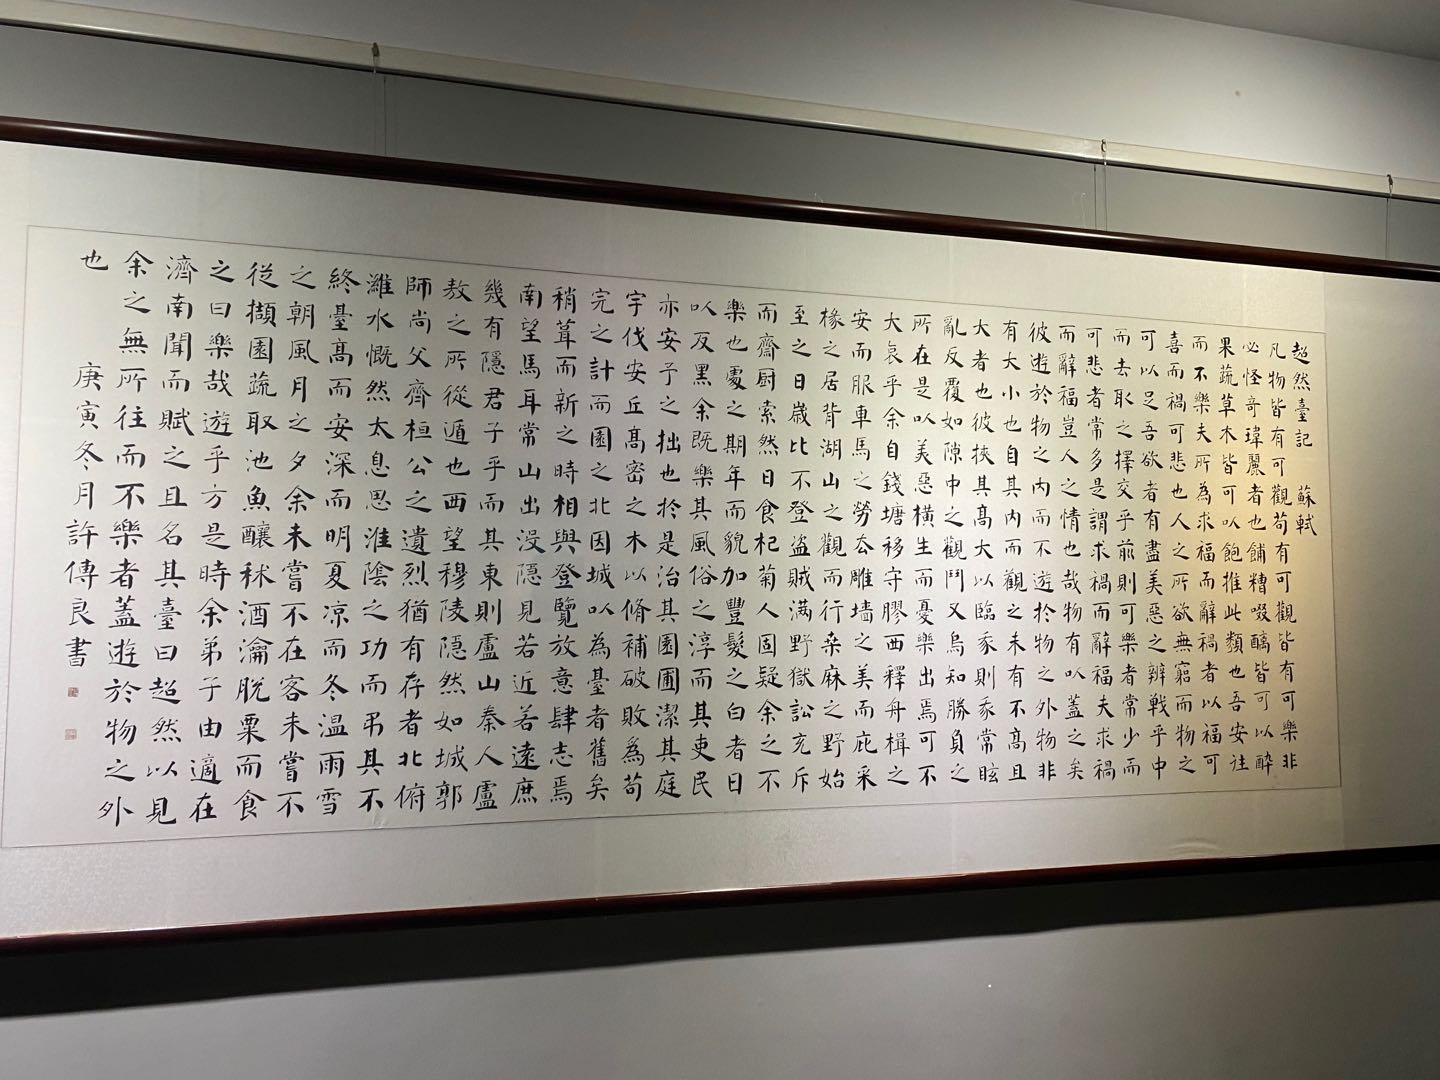 超然臺記 蘇軾
凡物皆有可觀苟有可觀皆有可樂非
必怪奇瑋麗者也餔糟啜醨皆可以醉
果蔬草木皆可以飽推此類也吾安往
而不樂夫所為求福而辭禍者以福可
喜而禍可悲也人之所欲無窮而物之
可以足吾欲者有盡美惡之辨戰乎中
而去取之擇交乎前則可樂者常少而
可悲者常多是謂求禍而辭福夫求禍
而辭福豈人之情也哉物有以蓋之矣
彼遊於物之內而不遊於物之外物非
有大小也自其內而觀之未有不髙且
大者也彼挾其髙大以臨我則我常眩
亂反覆如隙中之觀鬥又烏知勝負之
所在是以美惡橫生而憂樂出焉可不
大哀乎余自錢塘移守膠西釋舟楫之
安而服車馬之勞去雕墻之美而庇采
椽之居背湖山之觀而行桑麻之野始
至之日歲比不登盜賊满野獄訟充斥
而齋厨索然日食杞菊人固疑余之不
樂也處之期年而貌加豐髮之白者日
以反黑余既樂其風俗之淳而其吏民
亦安予之拙也於是治其園圃潔其庭
宇伐安丘髙密之木以脩補破敗為苟
完之計而園之北因城以為臺者舊矣
稍葺而新之時相與登覽放意肆志焉
南望馬耳常山出没隱見若近若遠庶
幾有隱君子乎而其東則盧山秦人盧
敖之所從遁也西望穆陵隱然如城郭
師尚父齊桓公之遺烈猶有存者北俯
濰水慨然太息思淮陰之功而弔其不
終臺髙而安深而明夏凉而冬温雨雪
之朝風月之夕余未嘗不在客未嘗不
從擷園蔬取池魚釀秫酒瀹脫粟而食
之曰樂哉遊乎方是時余弟子由適在
濟南聞而賦之且名其臺曰超然以見
余之無所往而不樂者蓋遊於物之外
也
庚寅冬月許傳良書